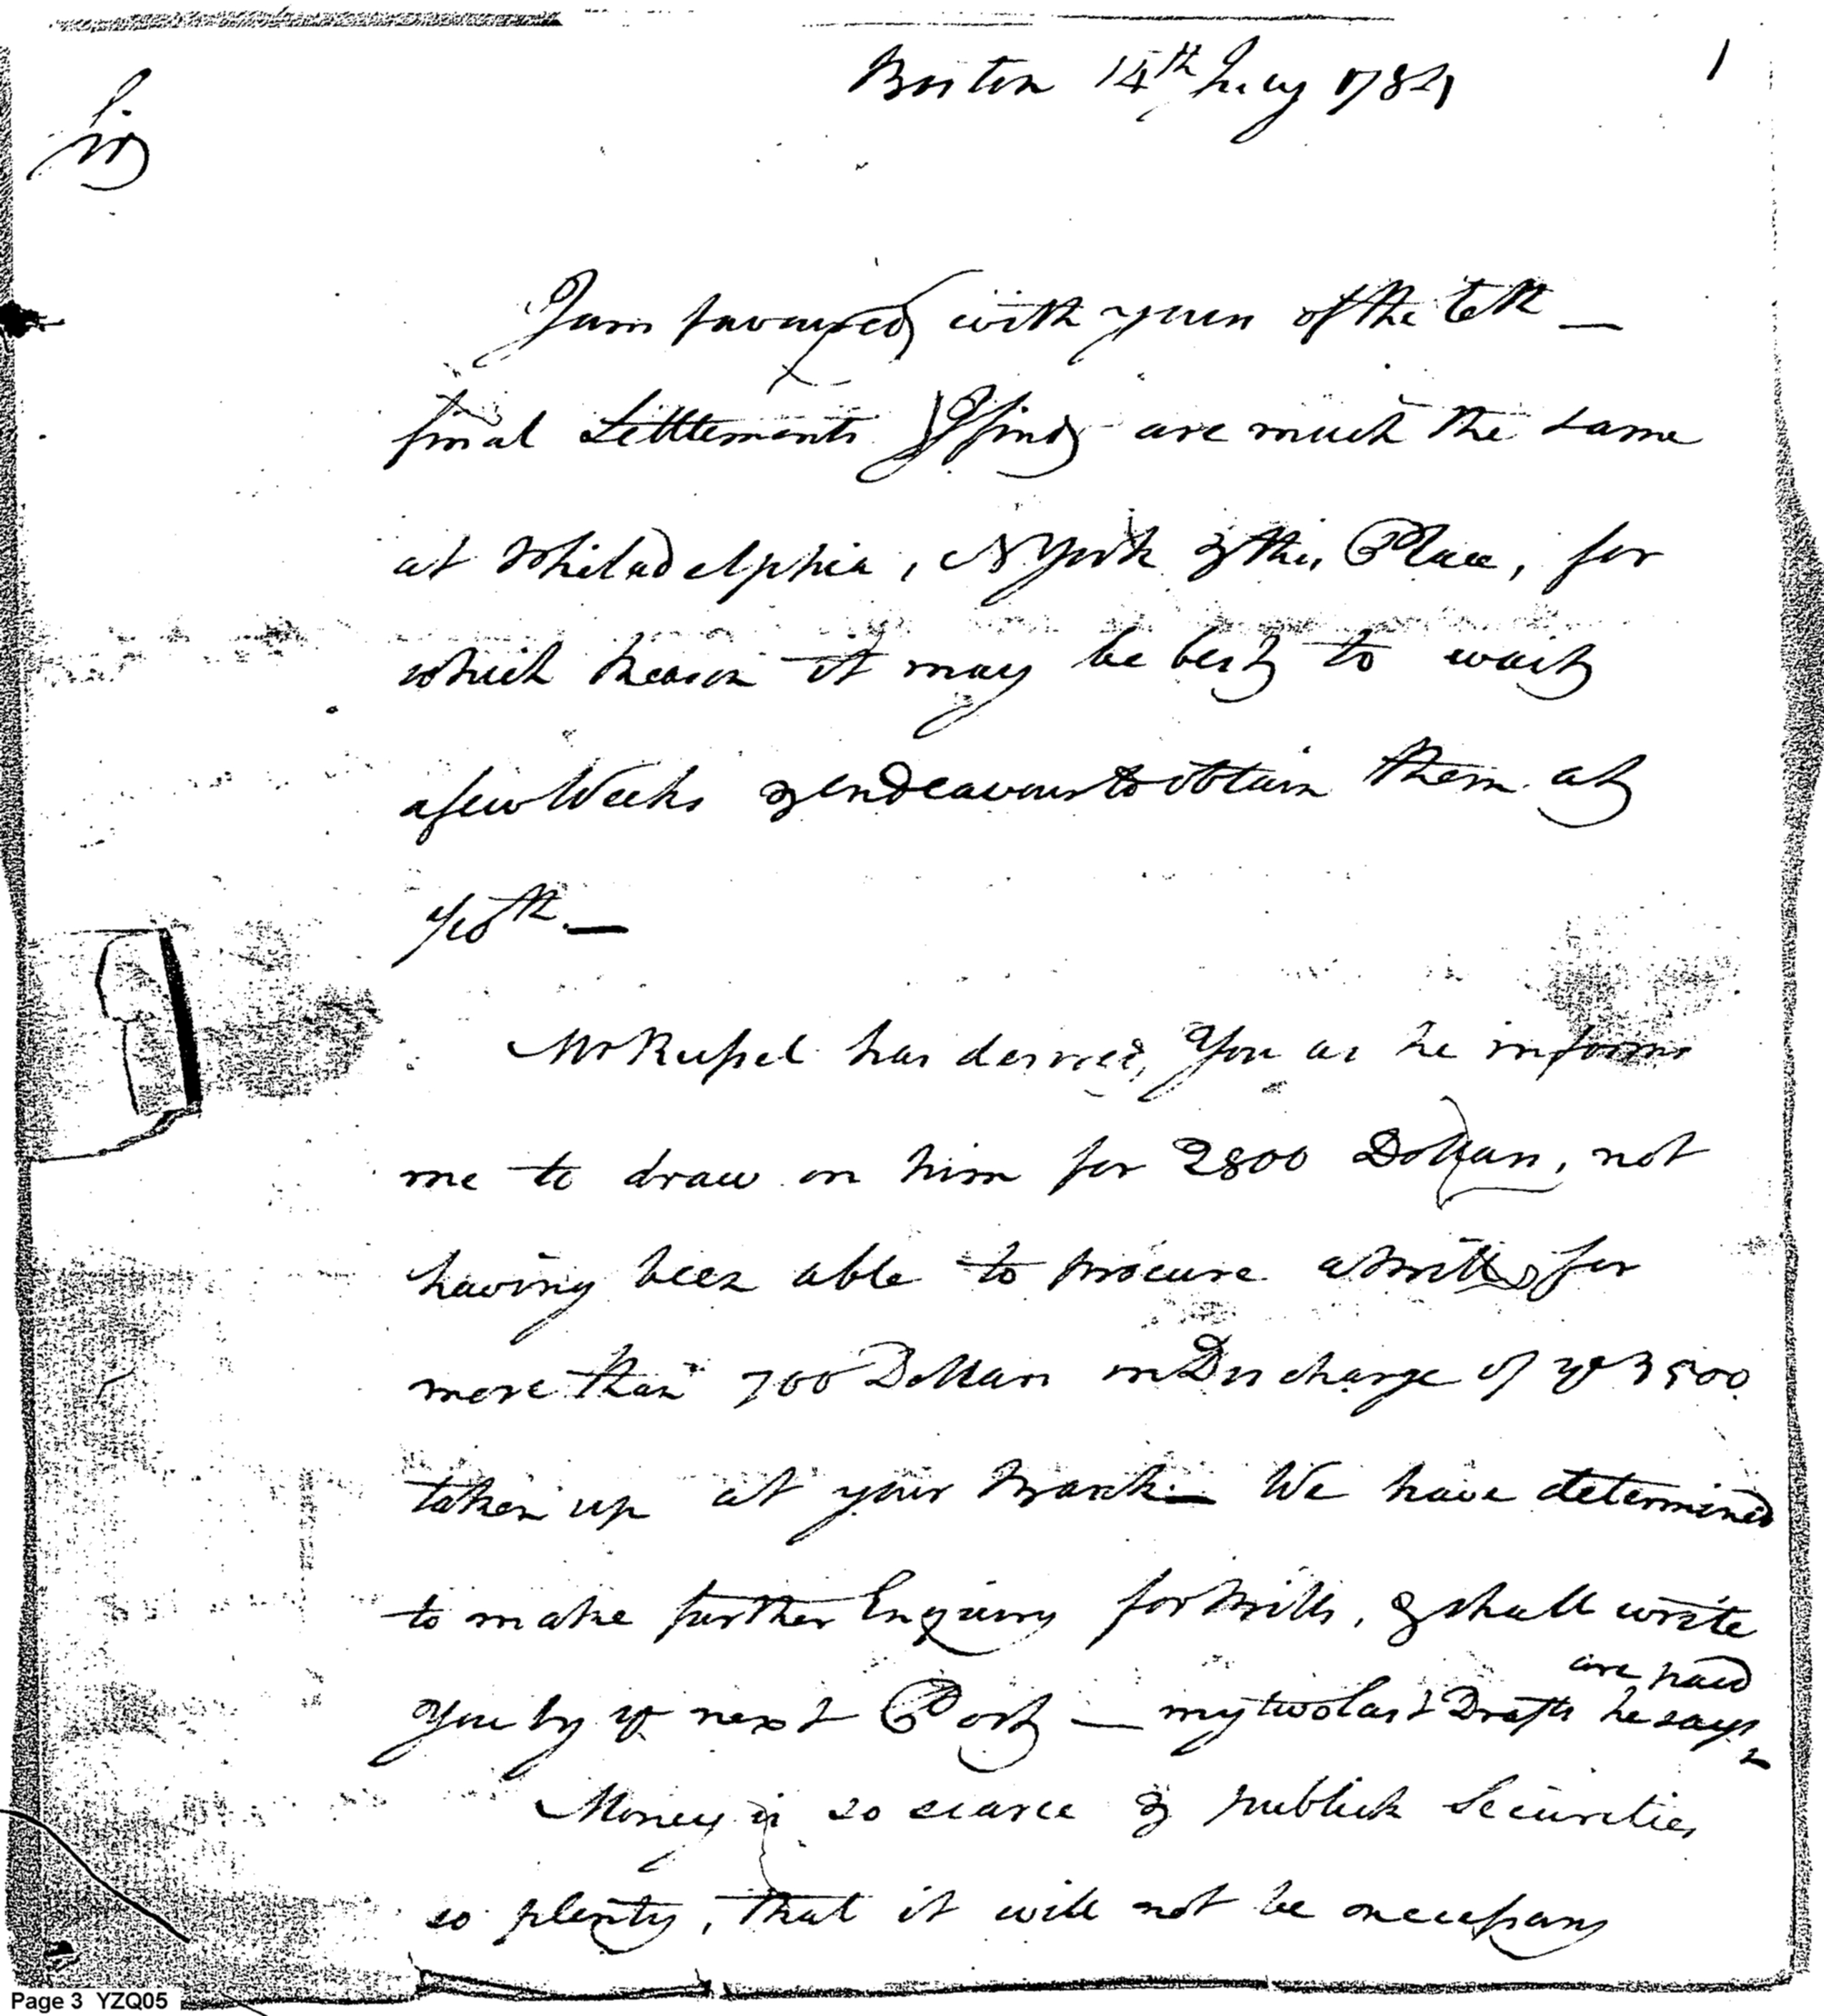 Boston 14th July 1784
1
Sir
I am favoured with yours of the 6th —
final Settlements I find are much the same
at Philadelphia, N York & this Place, for
which Reason it may be best to wait
a few Weeks & endeavour to obtain them at
—
Mr Russel has desired, You as he informs
me to draw on him for 2800 Dollars, not
having been able to procure Bills for
more than 700 Dollars in Discharge of ye 3500
taken up at your Bank. — We have determined
to make further Enquiry for Bills, & shall write
are paid
You by ye next Post — my two last Drafts he says
Money is so scarce & publick Securities
so plenty, that it will not be necessary
Page 3 YZQ05